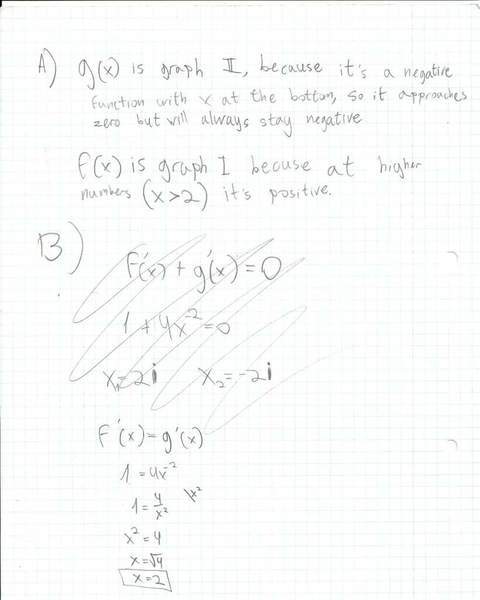 A) g(x) is graph II, because it's a negative
function with x at the bottom, so it approaches
zero but will always stay negative
f(x) is graph I becuse at higher
numbers (x>2) it's positive.
B)
f'(x) + g'(x) = 0
1 + 4x⁻² = 0
x₁ = 2i x₂ = -2i
f'(x) = g'(x)
1 = 4x⁻²
1 = 4/x² |x²
x² = 4
x = √4
x = 2